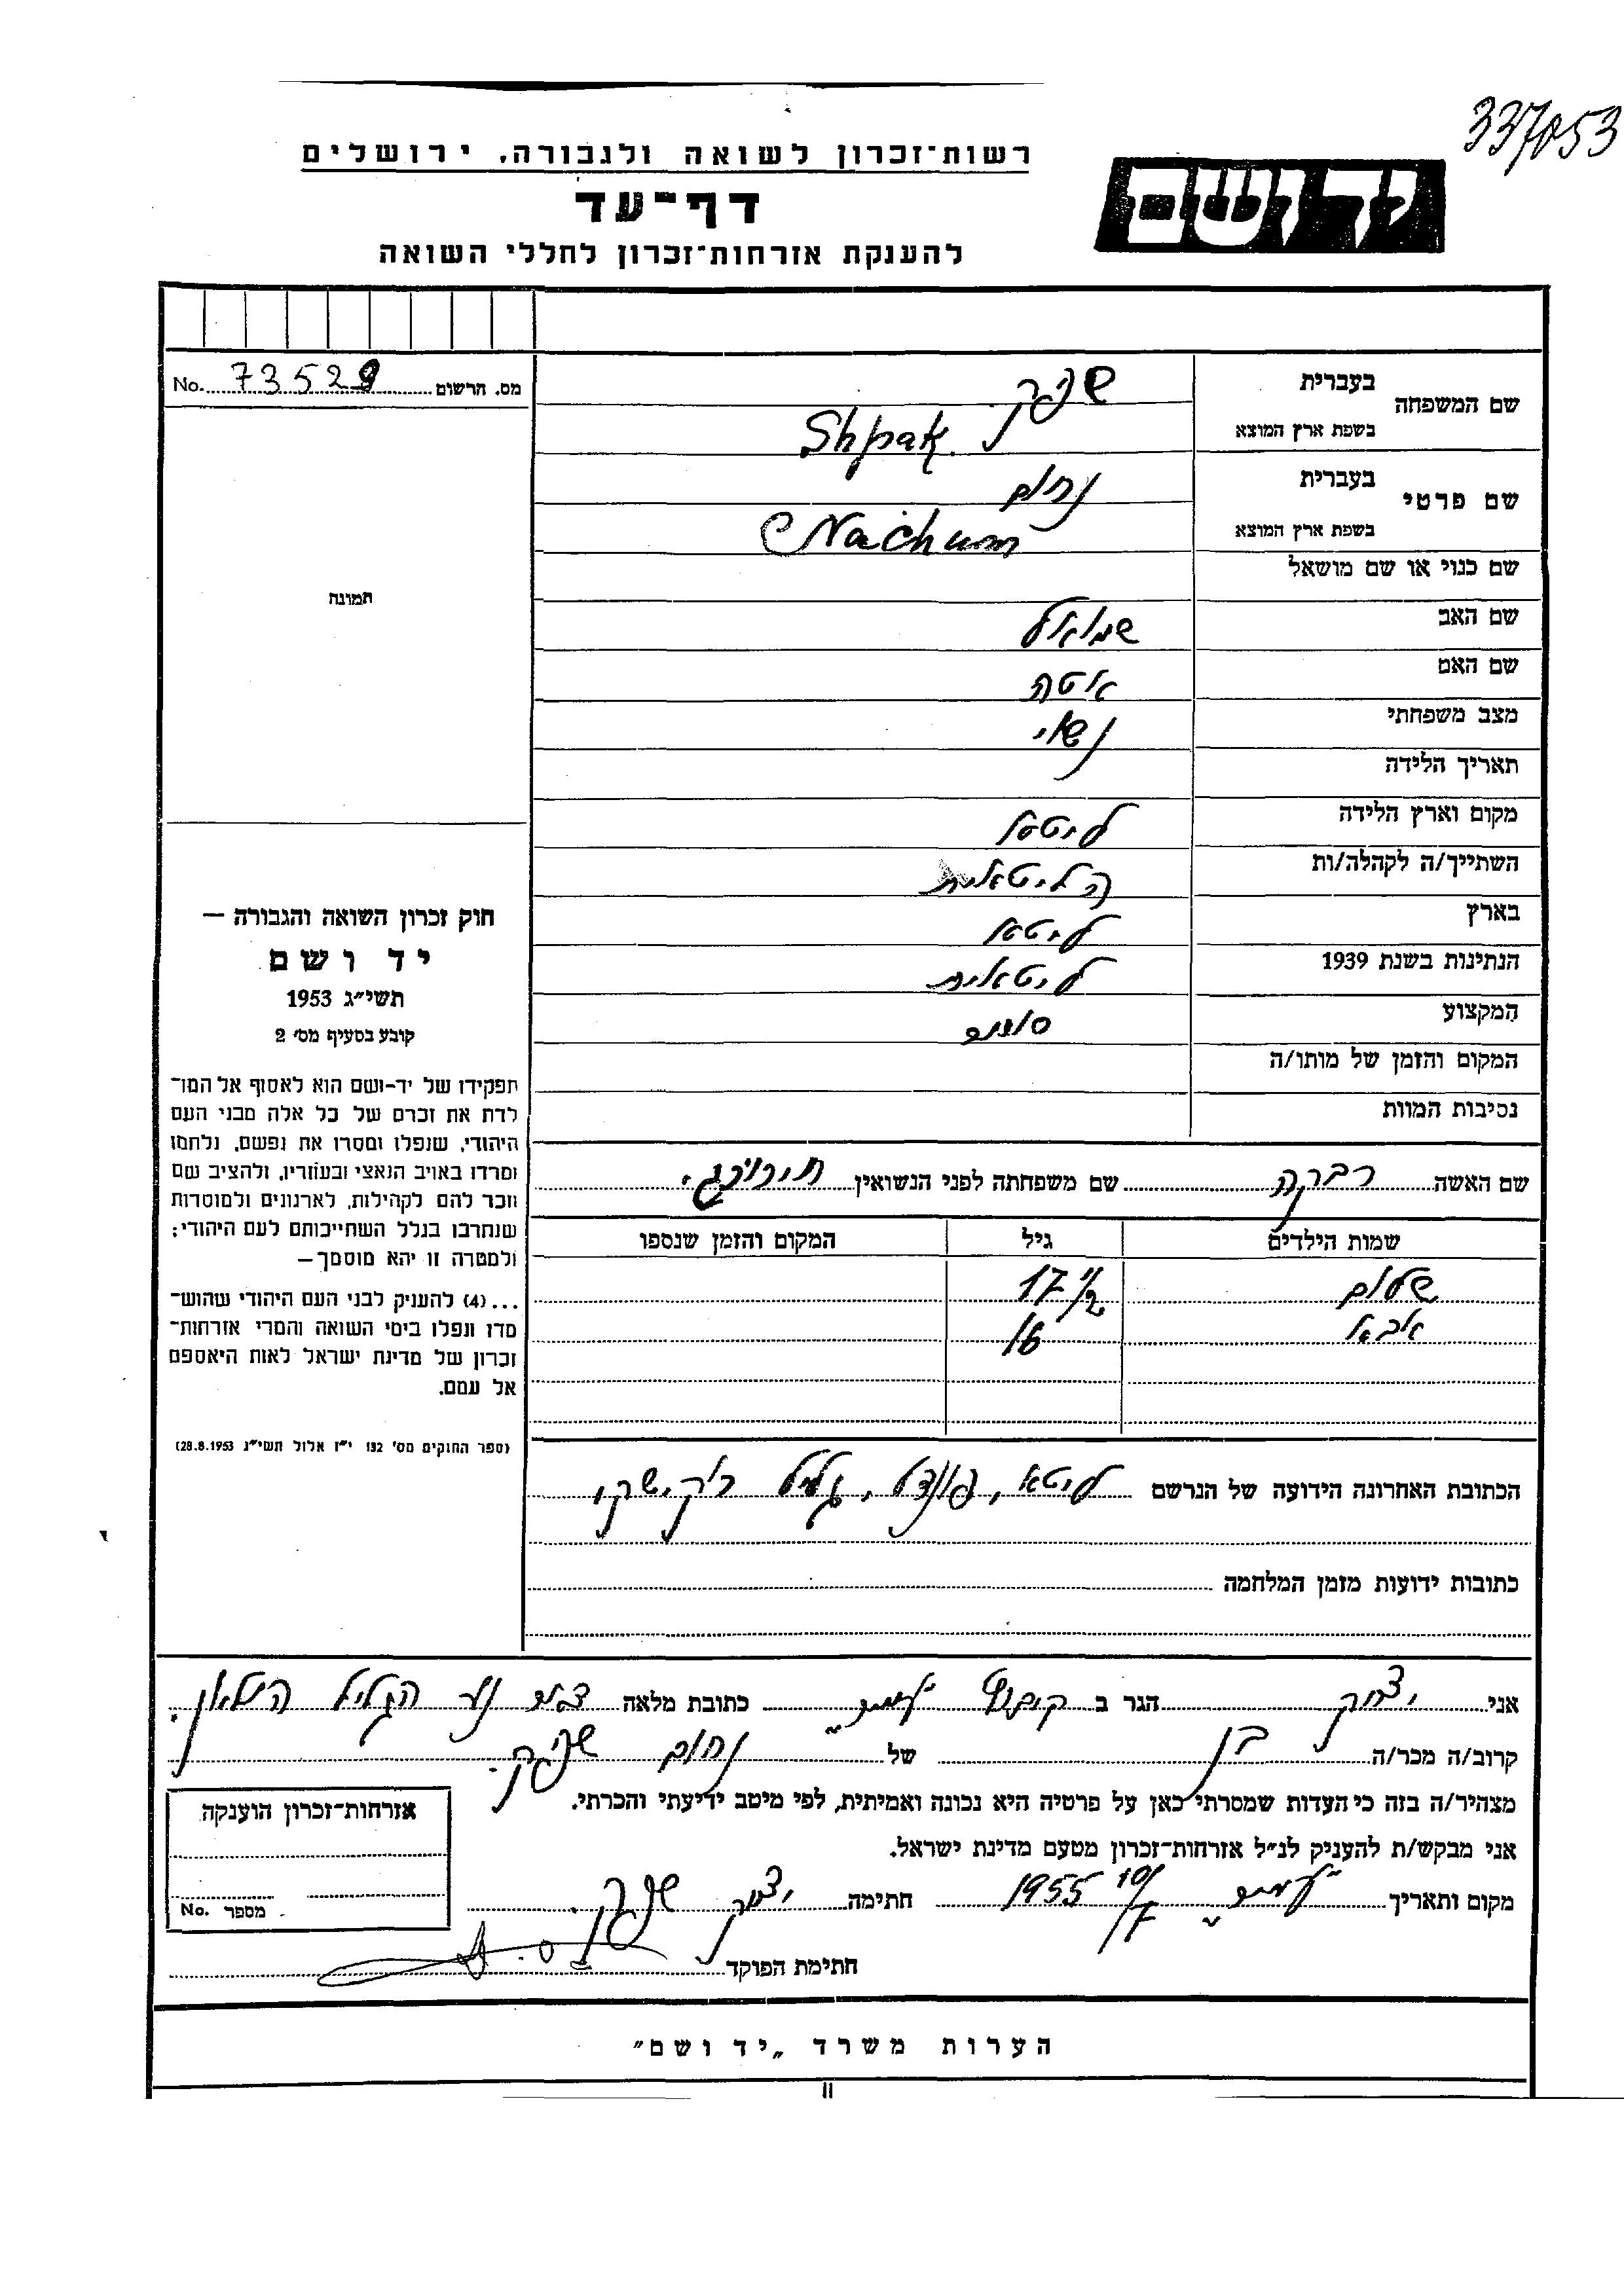 337053
רשות־זכרון לשואה ולגבורה, ירושלים
יד ושם
דף־עד
להענקת אזרחות־זכרון לחללי השואה
מס. הרשום 73529 No.
שם המשפחה
בעברית שפק
בשפת ארץ המוצא Shpak.
שם פרטי
בעברית נחום
בשפת ארץ המוצא Nachum
שם כנוי או שם מושאל
שם האב שמואל
שם האם איטה
מצב משפחתי נשוי
תאריך הלידה
מקום וארץ הלידה ליטא
השתייך/ה לקהלה/ות הליטאית
בארץ ליטא
הנתינות בשנת 1939 ליטאית
המקצוע סוחר
המקום והזמן של מותו/ה
נסיבות המוות
תמונה
חוק זכרון השואה והגבורה —
יד ושם
תשי״ג 1953
קובע בסעיף מס׳ 2
תפקידו של יד-ושם הוא לאסוף אל המו־
לדת את זכרם של כל אלה מבני העם
היהודי, שנפלו ומסרו את נפשם, נלחמו
ומרדו באויב הנאצי ובעוזריו, ולהציב שם
וזכר להם לקהילות, לארגונים ולמוסדות
שנחרבו בגלל השתייכותם לעם היהודי;
ולמטרה זו יהא מוסמך —
...(4) להעניק לבני העם היהודי שהוש־
מדו ונפלו בימי השואה והמרי אזרחות־
זכרון של מדינת ישראל לאות היאספם
אל עמם.
(ספר החוקים מס׳ 132 י״ז אלול תשי״ג 28.8.1953)
שם האשה רבקה שם משפחתה לפני הנשואין
שמות הילדים גיל המקום והזמן שנספו
שלום 17 1/2
אבא 16
הכתובת האחרונה הידועה של הנרשם ליטא, גליל
כתובות ידועות מזמן המלחמה
אני יצחק הגר ב קיבוץ כתובת מלאה ד.נ. הגליל העליון.
קרוב/ה מכר/ה בן של נחום שפק.
מצהיר/ה בזה כי העדות שמסרתי כאן על פרטיה היא נכונה ואמיתית, לפי מיטב ידיעתי והכרתי.
אני מבקש/ת להעניק לנ״ל אזרחות־זכרון מטעם מדינת ישראל.
מקום ותאריך 10/7 1955 חתימה יצחק שפק.
חתימת הפוקד
אזרחות־זכרון הוענקה
מספר No.
הערות משרד „יד ושם״